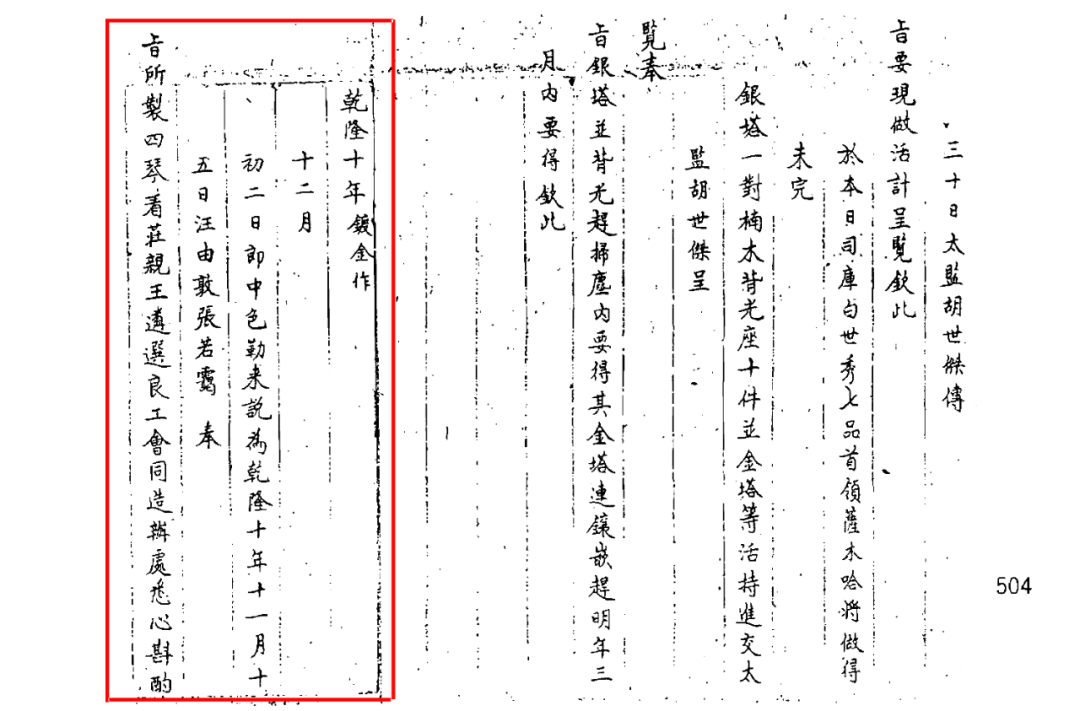 三十日太監胡世傑傳
旨要現做活計呈覽欽此
於本日司庫白世秀七品首領薩木哈將做得
未完
銀塔一對楠木背光座十件並金塔等活持進交太
監胡世傑呈
覽奉
旨銀塔並背光趕掃塵內要得其金塔連鑲嵌趕明年三
月內要得欽此
乾隆十年鍍金作
十二月
初二日郎中色勒來說為乾隆十年十一月十
五日汪由敦張若靄奉
旨所製四琴着莊親王遴選良工會同造辦處悉心斟酌
504